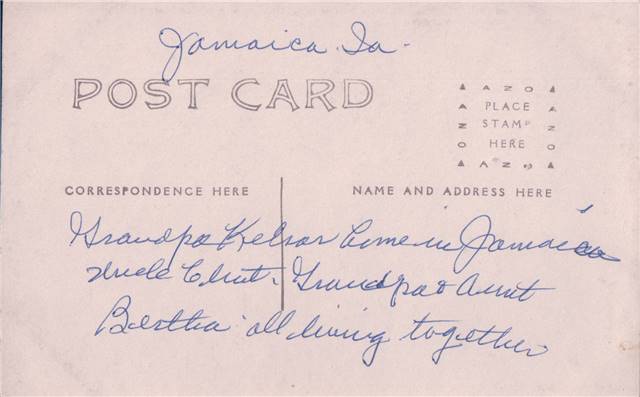 Jamaica Ia.
POST CARD
AZO
PLACE
STAMP
HERE
AZO
CORRESPONDENCE HERE
NAME AND ADDRESS HERE
Grandpa in Jamaica
Uncle Clint, Grandpa & Aunt
Bertha all living together